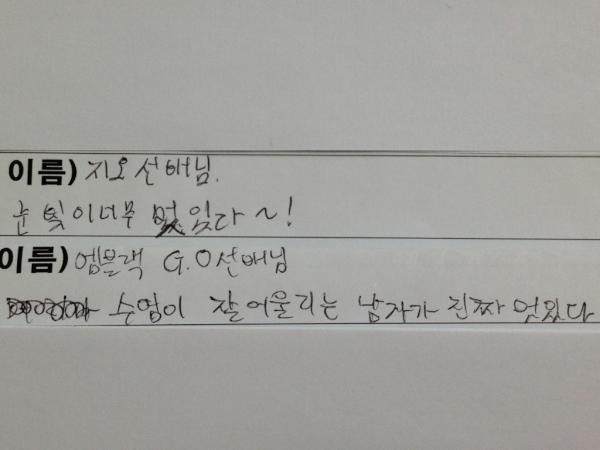 이름) 지오선배님.
눈빛이너무 멋있다~!
이름) 엠블랙 G.O선배님
수염이 잘어울리는 남자가 진짜 멋있다